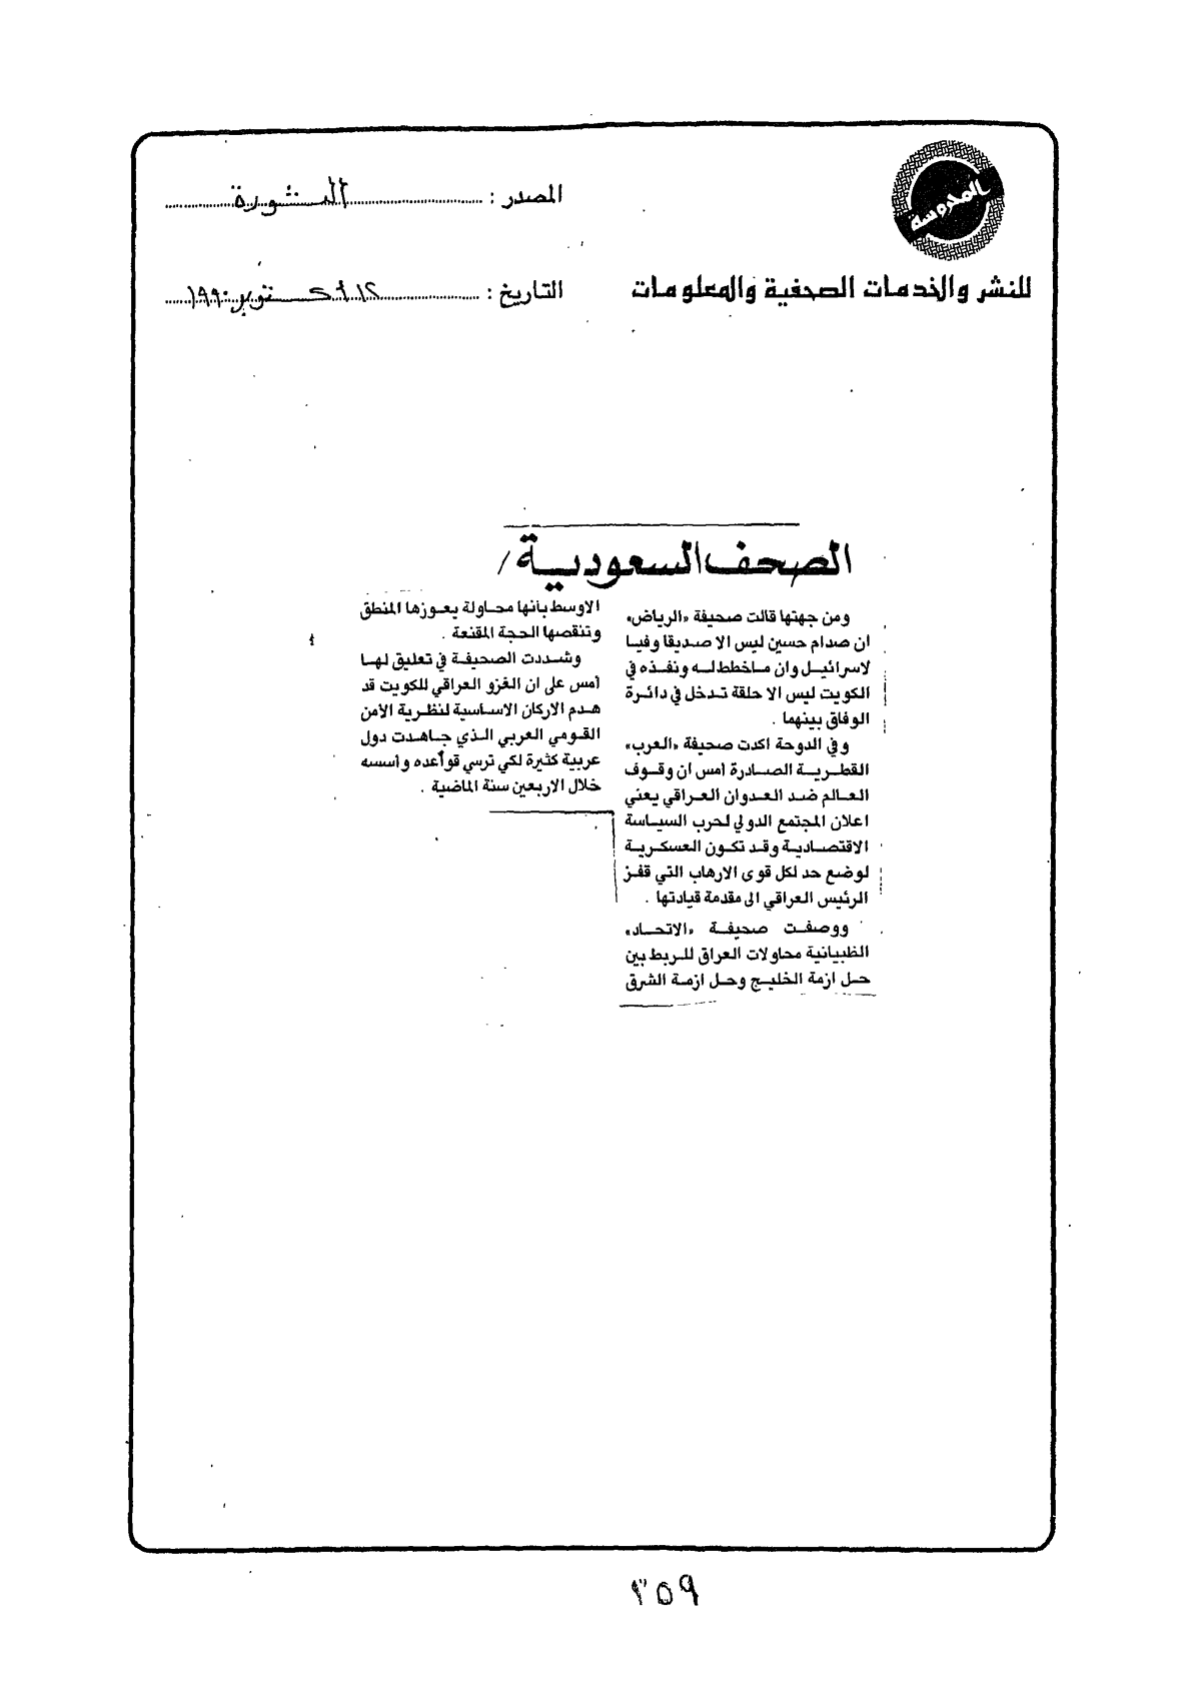 المحروسة
للنشر والخدمات الصحفية والمعلومات
المصدر : الثورة
التاريخ : ١٢ أكتوبر ١٩٩٠
الصحف السعودية /
ومن جهتها قالت صحيفة «الرياض»
ان صدام حسين ليس الا صديقا وفيا
لاسرائيل وان ماخطط له ونفذه في
الكويت ليس الا حلقة تدخل في دائرة
الوفاق بينهما .
وفي الدوحة اكدت صحيفة «العرب»
القطرية الصادرة أمس ان وقوف
العالم ضد العدوان العراقي يعني
اعلان المجتمع الدولي لحرب السياسة
الاقتصادية وقد تكون العسكرية
لوضع حد لكل قوى الارهاب التي قفز
الرئيس العراقي الى مقدمة قيادتها .
ووصفت صحيفة «الاتحاد»
الظبيانية محاولات العراق للربط بين
حل ازمة الخليج وحل ازمة الشرق
الاوسط بانها محاولة يعوزها المنطق
وتنقصها الحجة المقنعة .
وشددت الصحيفة في تعليق لها
أمس على ان الغزو العراقي للكويت قد
هدم الاركان الاساسية لنظرية الأمن
القومي العربي الذي جاهدت دول
عربية كثيرة لكي ترسي قواعده وأسسه
خلال الاربعين سنة الماضية .
٣٥٩